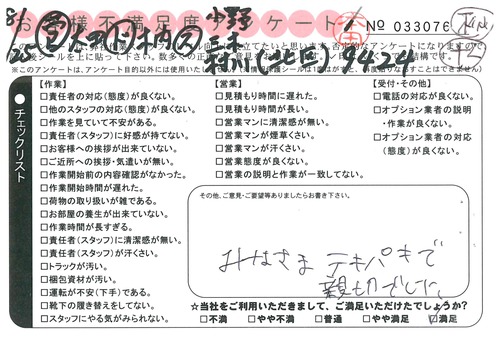 お客様不満足度アンケート
No 033076
さい。※このアンケートは、アンケート目的以外には使用いたしません。
チェックリスト
【作業】
□責任者の対応(態度)が良くない。
□他のスタッフの対応(態度)が良くない。
□作業を見ていて不安がある。
□責任者(スタッフ)に好感が持てない。
□お客様への挨拶が出来ていない。
□ご近所への挨拶・気遣いが無い。
□作業開始前の内容確認がなかった。
□作業開始時間が遅れた。
□荷物の取り扱いが雑である。
□お部屋の養生が出来ていない。
□作業時間が長すぎる。
□責任者(スタッフ)に清潔感が無い。
□責任者(スタッフ)が汗くさい。
□トラックが汚い。
□梱包資材が汚い。
□運転が不安(下手)である。
□靴下の履き替えをしてない。
□スタッフにやる気がみられない。
【営業】
□見積もり時間に遅れた。
□見積もり時間が長い。
□営業マンに清潔感が無い。
□営業マンが煙草くさい。
□営業マンが汗くさい。
□営業態度が良くない。
□営業の説明と作業が一致してない。
【受付・その他】
□電話の対応が良くない。
□オプション業者の説明・作業が良くない。
□オプション業者の対応(態度)が良くない。
その他、ご意見・ご要望等ありましたらお書き下さい。
みなさま テキパキで
親切でした。
☆当社をご利用いただきまして、ご満足いただけたでしょうか?
□不満 □やや不満 □普通 □やや満足 □満足